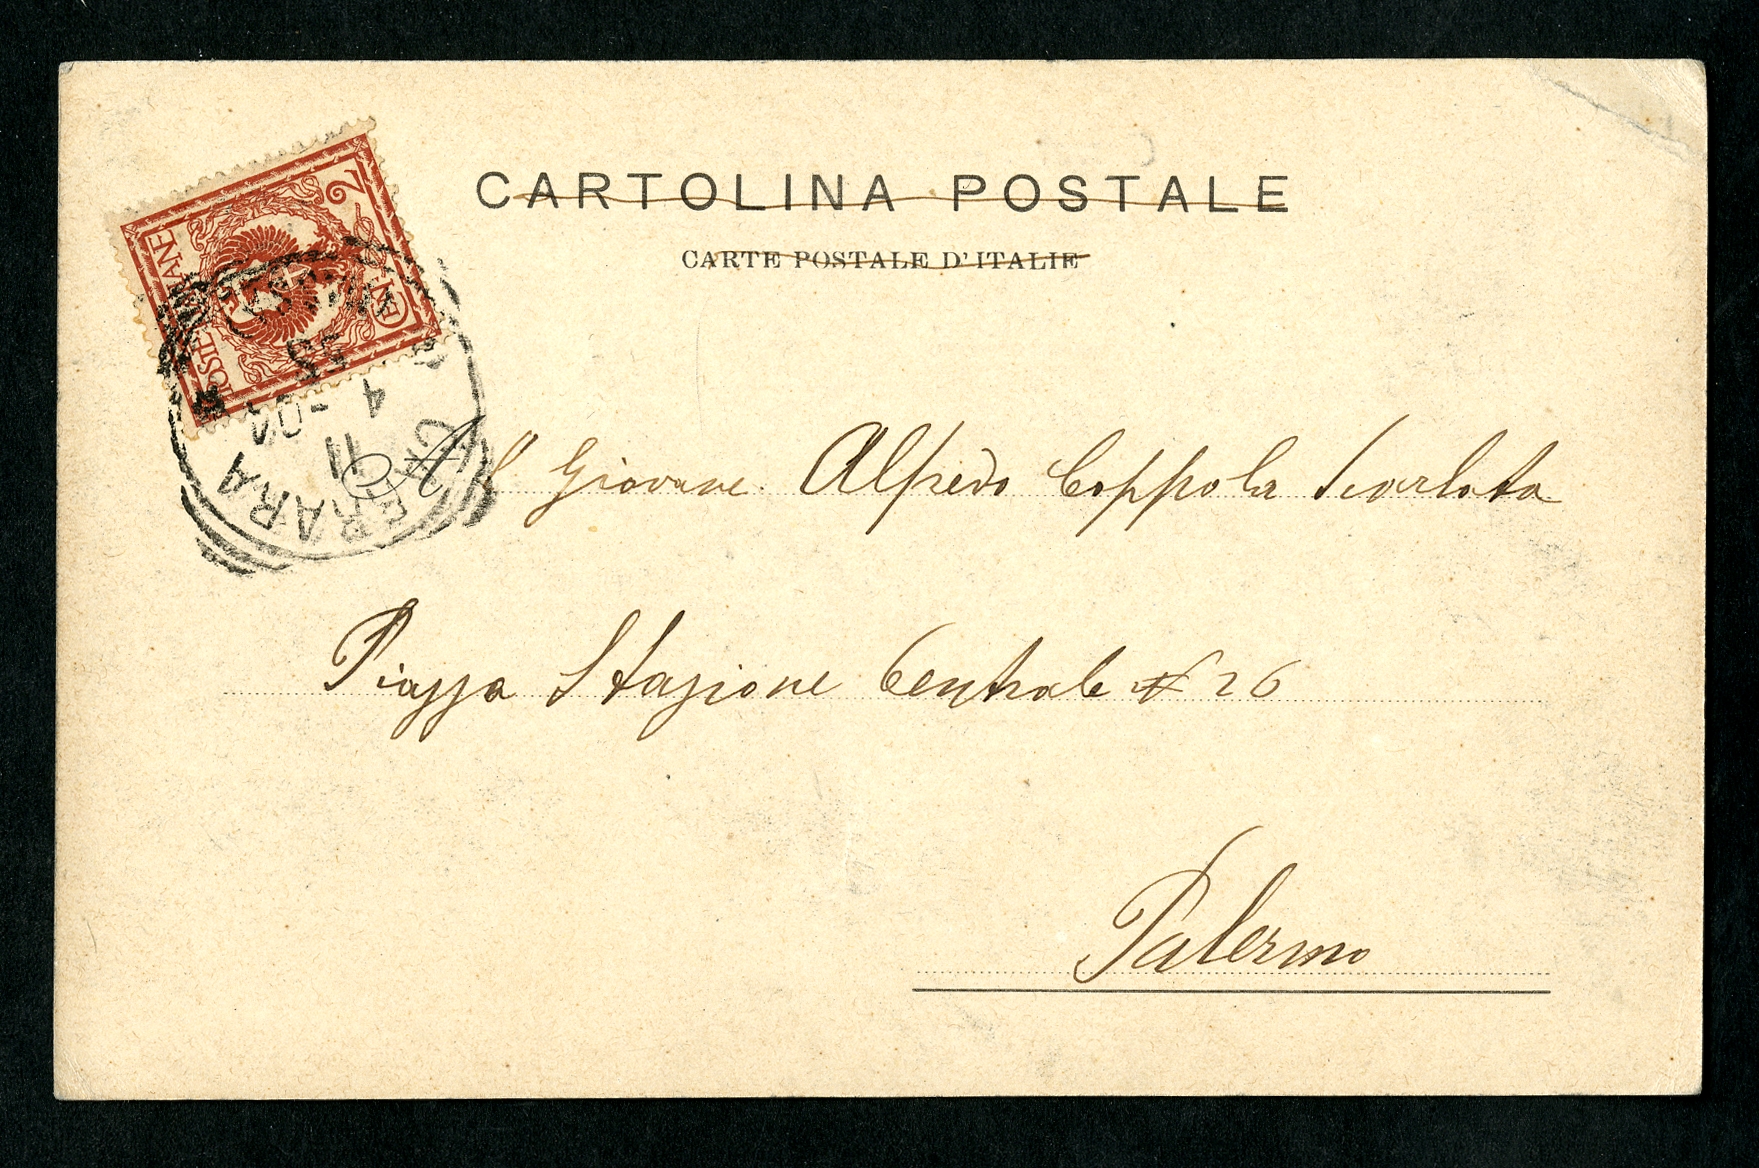 CARTOLINA POSTALE
CARTE POSTALE D'ITALIE
POSTE ITALIANE
CENT. 2
FERRARA
11
4 - 04
5 S
Al Giovane Alfredo Coppola Scarlata
Piazza Stazione Centrale N 26
Palermo